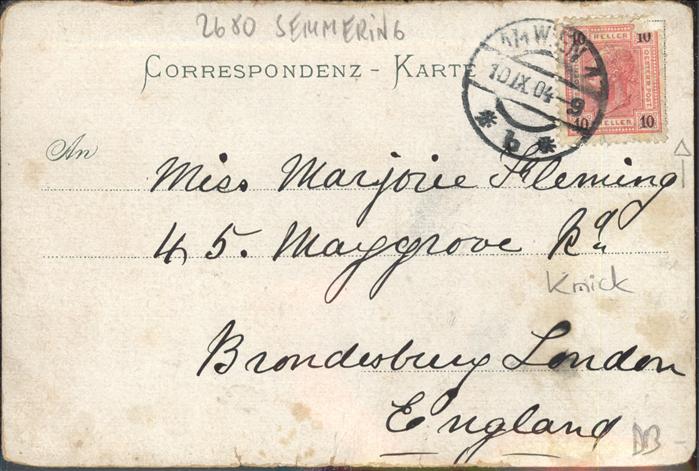 2680 SEMMERING
CORRESPONDENZ - KARTE
10 10
HELLER
10 IX 04 - 9
* b *
10 10
HELLER
An
Miss Marjorie Fleming
45. Maygrove Rd
Knick
Brondesbury London
England